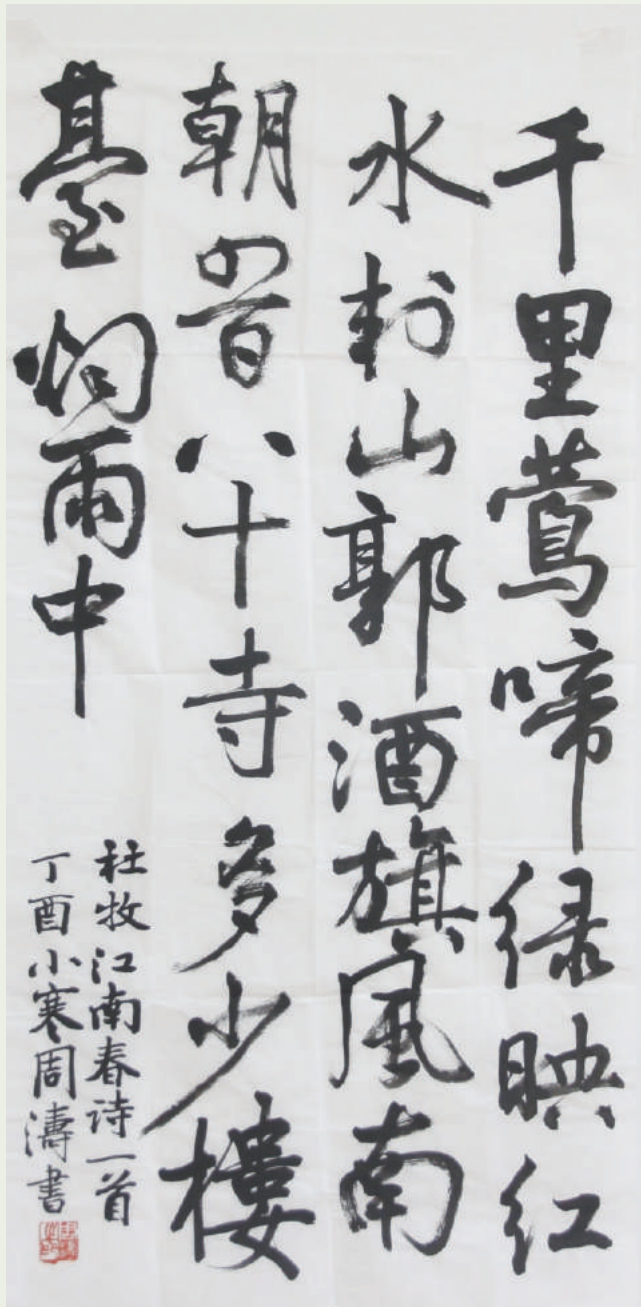 千里莺啼绿映红
水村山郭酒旗風南
朝四百八十寺多少樓
臺烟雨中
杜牧江南春诗一首
丁酉小寒周濤書